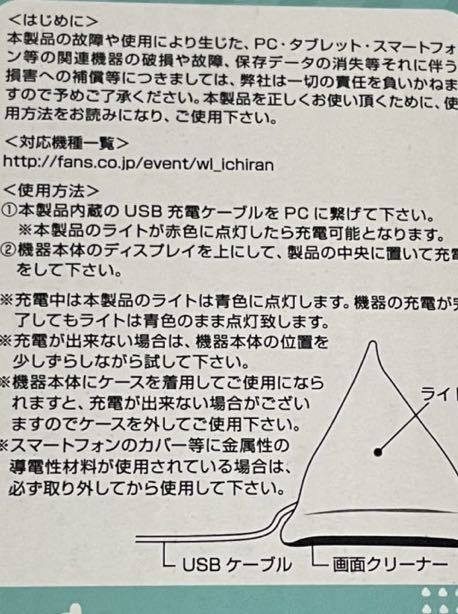 ＜はじめに＞
本製品の故障や使用により生じた、PC・タブレット・スマートフォ
ン等の関連機器の破損や故障、保存データの消失等それに伴う
損害への補償等につきましては、弊社は一切の責任を負いかねま
すので予めご了承ください。本製品を正しくお使い頂くために、使
用方法をお読みになり、ご使用下さい。
＜対応機種一覧＞
http://fans.co.jp/event/wl_ichiran
＜使用方法＞
①本製品内蔵の USB 充電ケーブルを PC に繋げて下さい。
※本製品のライトが赤色に点灯したら充電可能となります。
②機器本体のディスプレイを上にして、製品の中央に置いて充電
をして下さい。
※充電中は本製品のライトは青色に点灯します。機器の充電が完
了してもライトは青色のまま点灯致します。
※充電が出来ない場合は、機器本体の位置を
少しずらしながら試して下さい。
※機器本体にケースを着用してご使用になら
れますと、充電が出来ない場合がござい
ますのでケースを外してご使用下さい。
※スマートフォンのカバー等に金属性の
導電性材料が使用されている場合は、
必ず取り外してから使用して下さい。
ライト
USB ケーブル
画面クリーナー